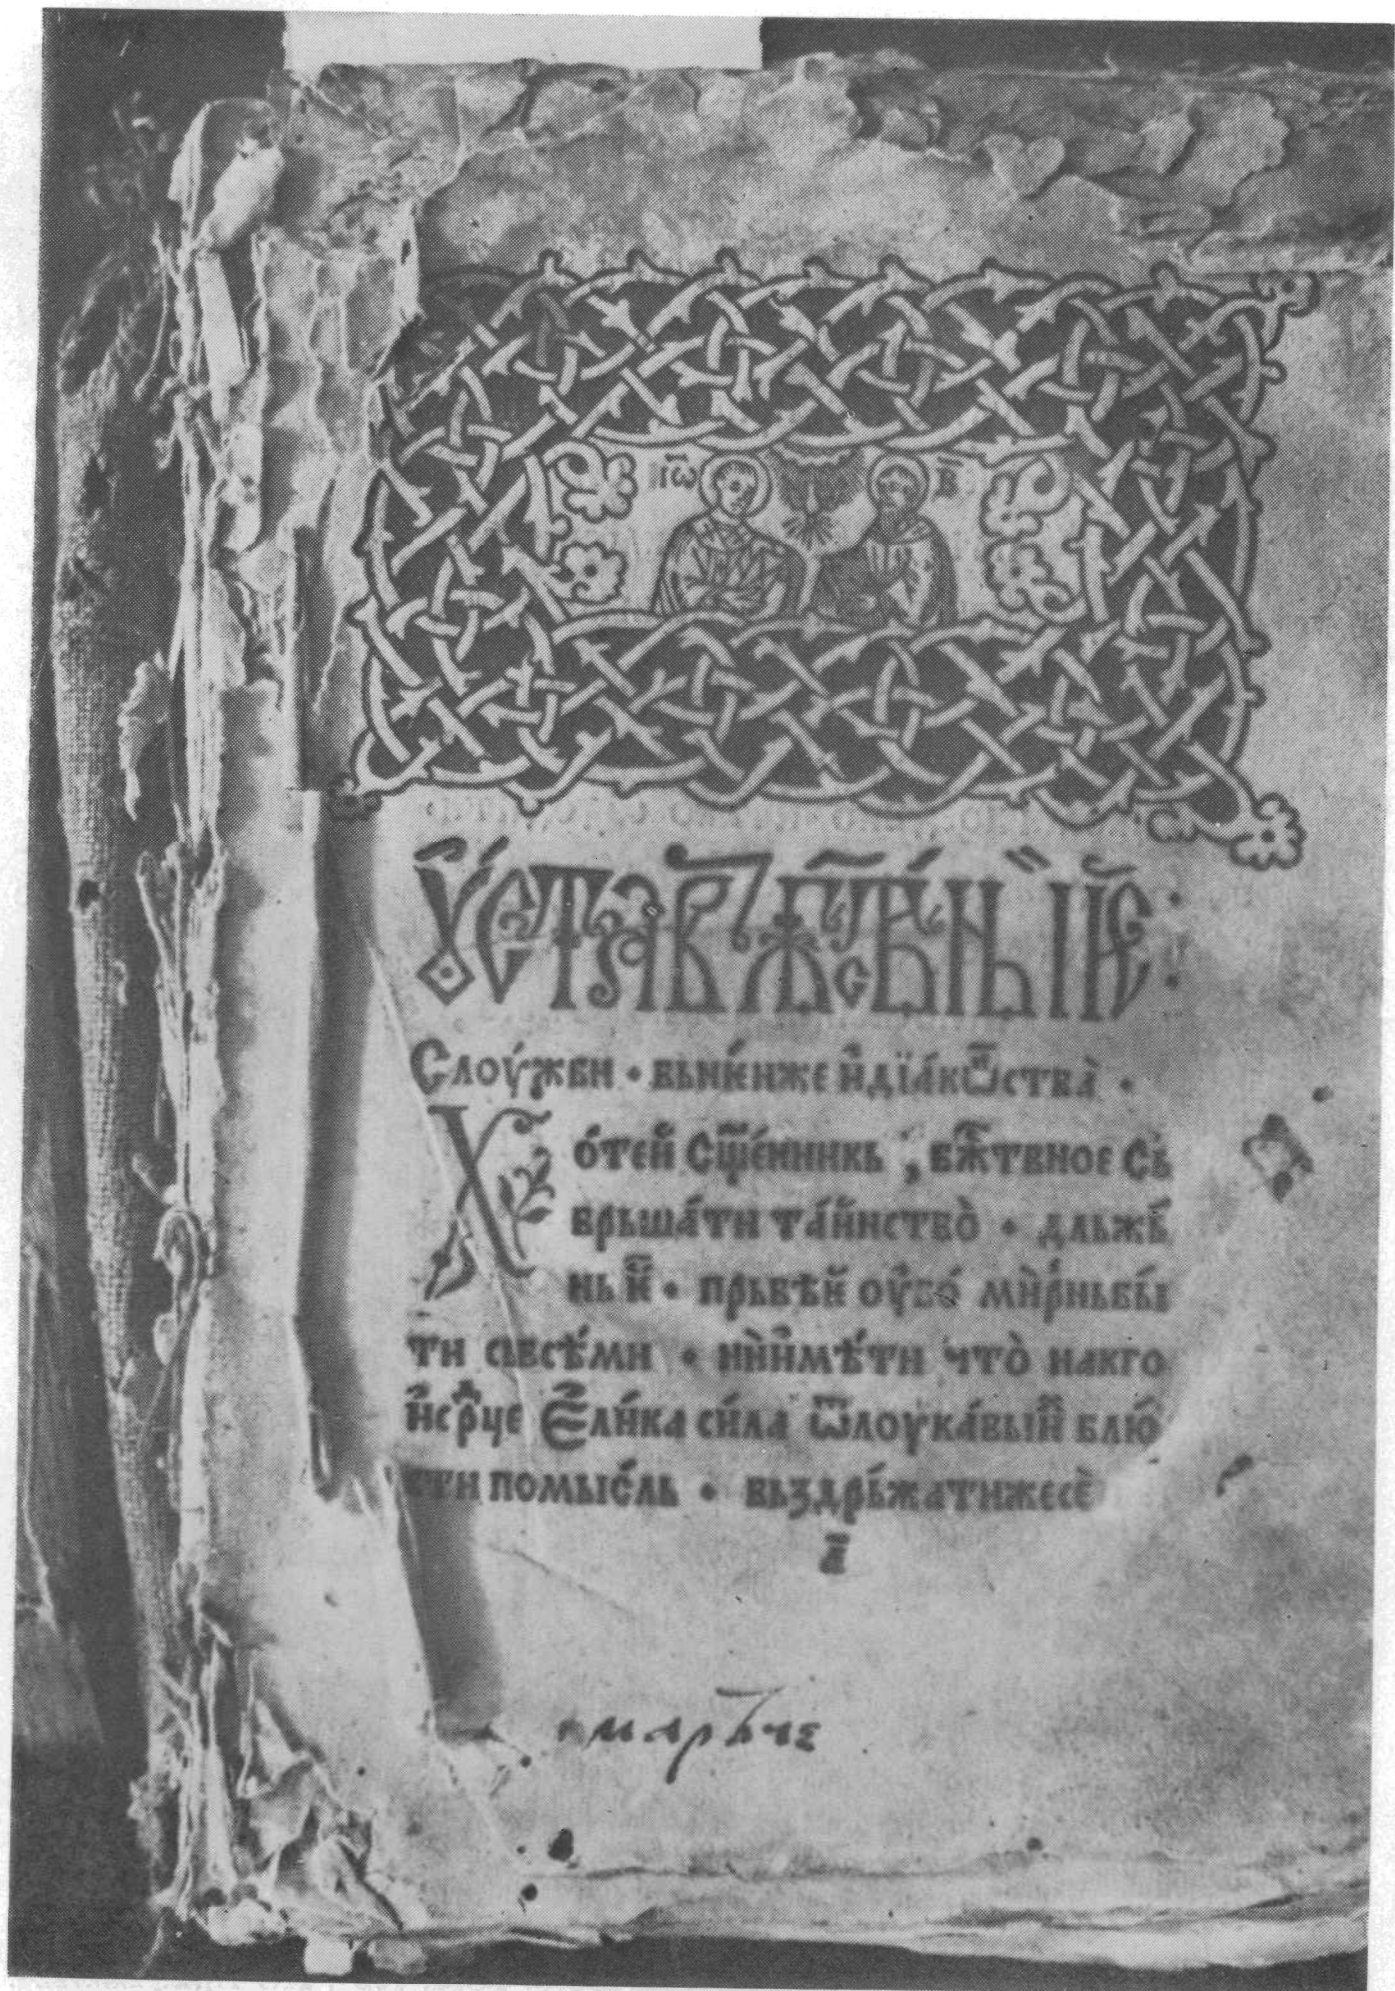 І҃ѡ В҃
Ѹ҆СТАВЬ БЖ҃СТВЬНЫІ͠Е :
Слоу́жби • вьнѥ́нже и҆дїа́кѡ҃ства̀ •
Хо́теи сщ҃е́нникь , бж҃твное сь
врьша́ти та́инство̀ • дльжь́
нь и҃ • прьвѣи оу҆́бо́ ми̑рньбы́
ти сьвсѣ́ми • ни̏имѣ́ти что̀ накго
и҆ср҃ⷣце Ели́ка си́ла ѿлоука́выи блю
сти помы́сль • вьздрь́жатижесѐ
а҃